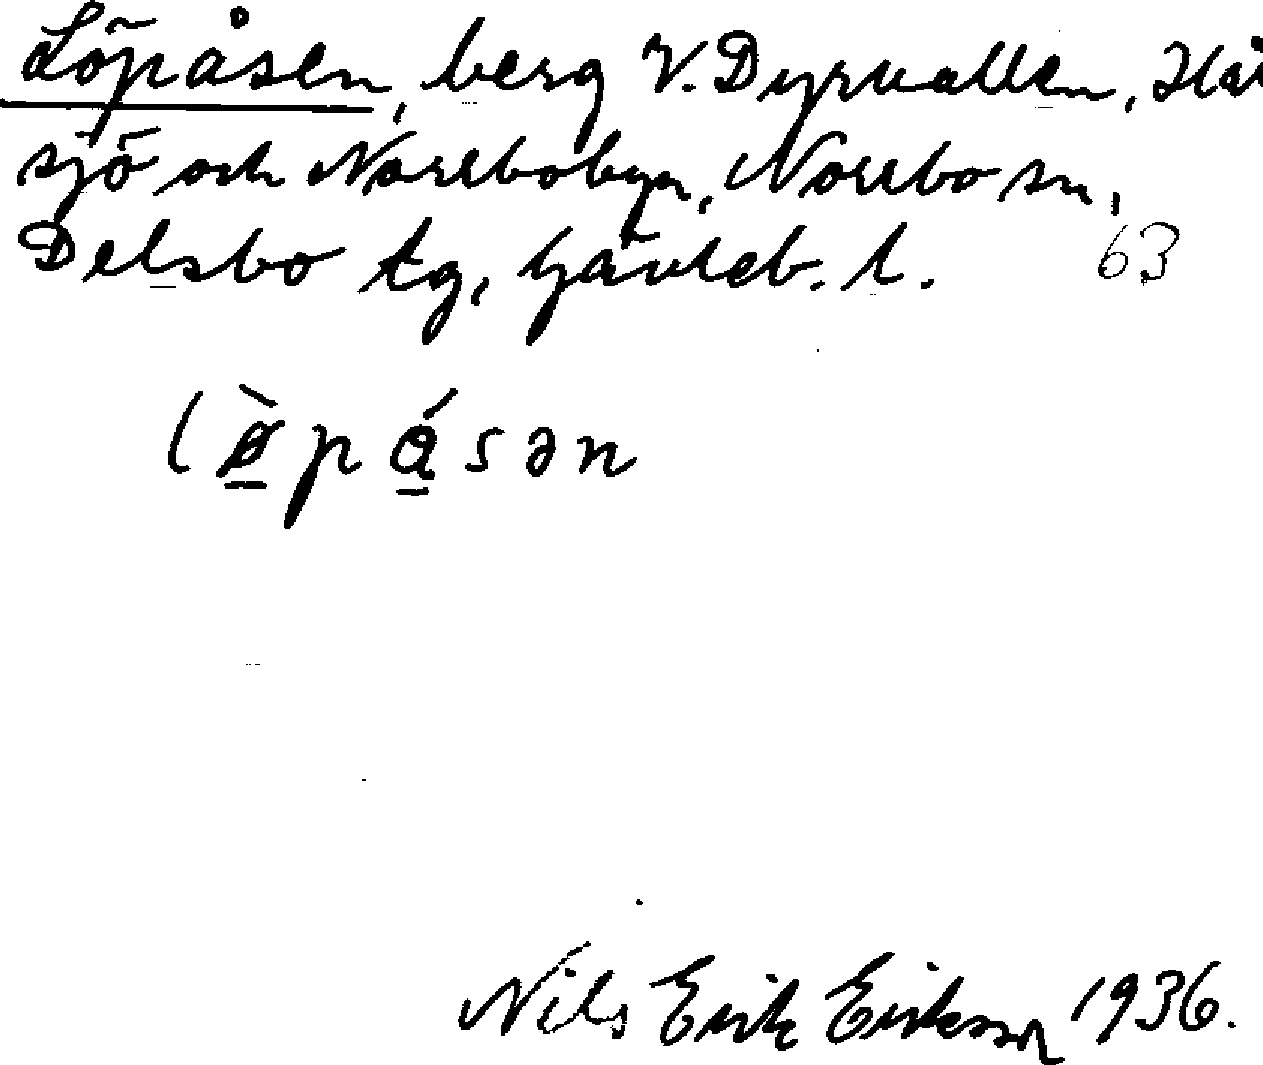 Löpåsen, berg V. Dyrvallen, Hå
sjö och Norrbobyn, Norrbo sn,
Delsbo tg, Gävleb. l. 63
lø̀påsən
Nils Erik Eriksson 1936.